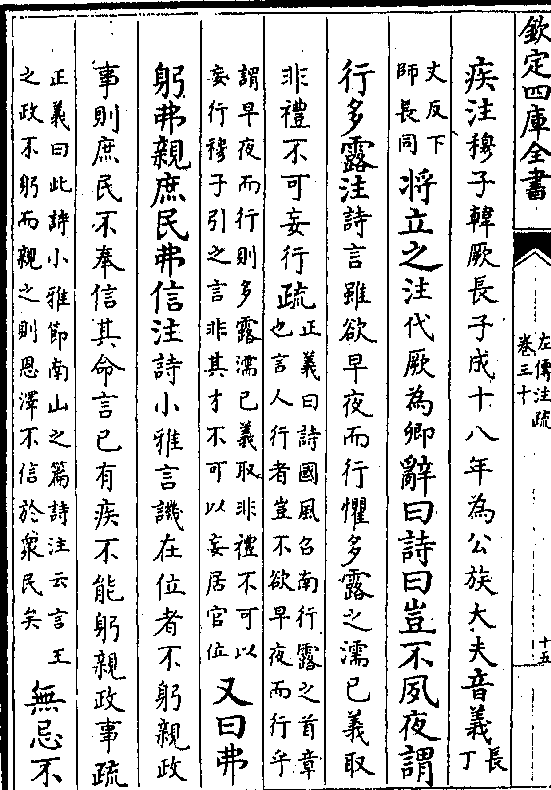 欽定四庫全書
左傳注疏
卷三十
十五
疾注穆子韓厥長子成十八年為公族大夫音義長
丁
丈反下
師長同將立之注代厥為卿辭曰詩曰豈不夙夜謂
行多露注詩言雖欲早夜而行懼多露之濡已義取
非禮不可妄行疏正義曰詩國風召南行露之首章
也言人行者豈不欲早夜而行乎
謂早夜而行則多露濡已義取非禮不可以
妄行穆子引之言非其才不可以妄居官位又曰弗
躬弗親庶民弗信注詩小雅言譏在位者不躬親政
事則庶民不奉信其命言已有疾不能躬親政事疏
正義曰此詩小雅節南山之篇詩注云言王
之政不躬而親之則恩澤不信於衆民矣無忌不